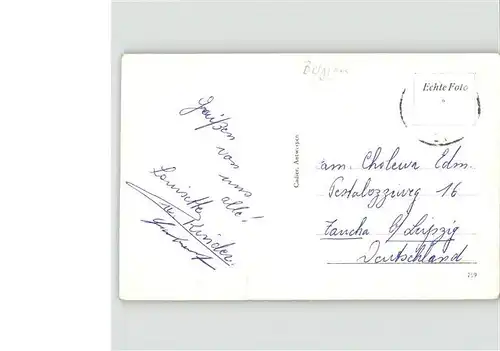 Belgien
Echte Foto
Grüßen
von uns
alle!
Louisette
u Kinder.
Caöler, Antwerpen
Fam. Cholewa Edm.
Pestalozziweg 16
Taucha b/ Leipzig
Deutschland